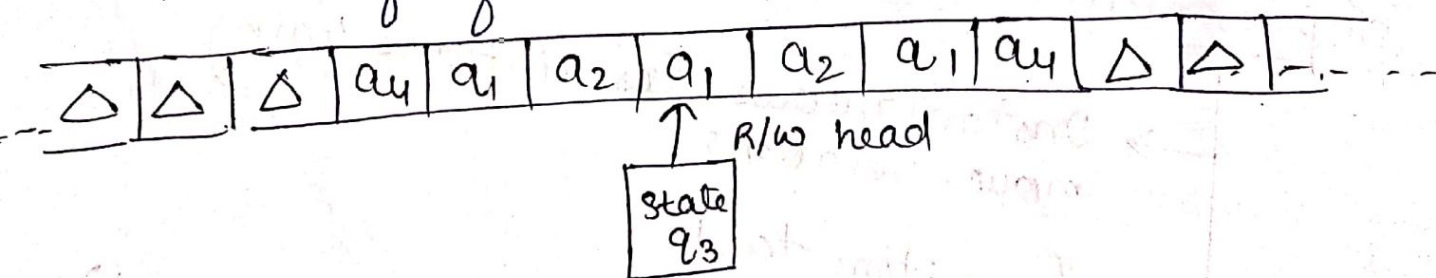 --- Δ | Δ | Δ | a₄ | a₁ | a₂ | a₁ | a₂ | a₁ | a₄ | Δ | Δ | -----
R/W head
State
q₃